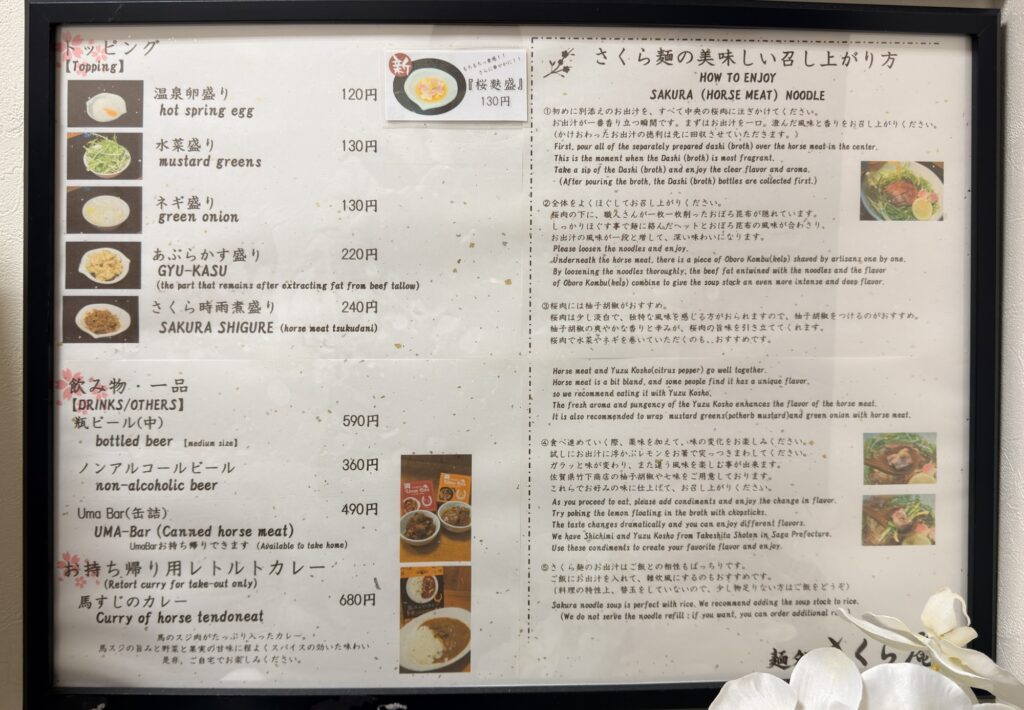 トッピング
【Topping】
温泉卵盛り 120円
hot spring egg
水菜盛り 130円
mustard greens
ネギ盛り 130円
green onion
あぶらかす盛り 220円
GYU-KASU
(the part that remains after extracting fat from beef tallow)
さくら時雨煮盛り 240円
SAKURA SHIGURE (horse meat tsukudani)
新
『桜麩盛』
130円
飲み物・一品
【DRINKS/OTHERS】
瓶ビール(中) 590円
bottled beer 【medium size】
ノンアルコールビール 360円
non-alcoholic beer
Uma Bar(缶詰) 490円
UMA-Bar (Canned horse meat)
UmaBarお持ち帰りできます (Available to take home)
お持ち帰り用レトルトカレー
(Retort curry for take-out only)
馬すじのカレー 680円
Curry of horse tendoneat
馬のスジ肉がたっぷり入ったカレー。
馬スジの旨みと野菜と果実の甘味に程よくスパイスの効いた味わい
是非、ご自宅でお楽しみください。
さくら麺の美味しい召し上がり方
HOW TO ENJOY
SAKURA (HORSE MEAT) NOODLE
①初めに別添えのお出汁を、すべて中央の桜肉に注ぎかけてください。
お出汁が一番香り立つ瞬間です。まずはお出汁を一口。澄んだ風味と香りをお召し上がりください。
(かけおわったお出汁の徳利は先に回収させていただきます。)
First, pour all of the separately prepared dashi (broth) over the horse meat in the center.
This is the moment when the Dashi (broth) is most fragrant.
Take a sip of the Dashi (broth) and enjoy the clear flavor and aroma.
(After pouring the broth, the Dashi (broth) bottles are collected first.)
②全体をよくほぐしてお召し上がりください。
桜肉の下に、職人さんが一枚一枚削ったおぼろ昆布が隠れています。
しっかりほぐす事で麺に絡んだヘットとおぼろ昆布の風味が合わさり、
お出汁の風味が一段と増して、深い味わいになります。
Please loosen the noodles and enjoy.
Underneath the horse meat, there is a piece of Oboro Kombu(kelp) shaved by artisans one by one.
By loosening the noodles thoroughly, the beef fat entwined with the noodles and the flavor
of Oboro Kombu(kelp) combine to give the soup stock an even more intense and deep flavor.
③桜肉には柚子胡椒がおすすめ。
桜肉は少し淡白で、独特な風味を感じる方がおられますので、柚子胡椒をつけるのがおすすめ。
柚子胡椒の爽やかな香りと辛みが、桜肉の旨味を引き立ててくれます。
桜肉で水菜やネギを巻いていただくのも、おすすめです。
Horse meat and Yuzu Kosho(citrus pepper) go well together.
Horse meat is a bit bland, and some people find it has a unique flavor,
so we recommend eating it with Yuzu Kosho.
The fresh aroma and pungency of the Yuzu Kosho enhances the flavor of the horse meat.
It is also recommended to wrap mustard greens(potherb mustard)and green onion with horse meat.
④食べ進めていく際、薬味を加えて、味の変化をお楽しみください。
試しにお出汁に浮かぶレモンをお箸で突っつきまわしてください。
ガラッと味が変わり、また違う風味を楽しむ事が出来ます。
佐賀県竹下商店の柚子胡椒や七味をご用意しております。
これらでお好みの味に仕上げて、お召し上がりください。
As you proceed to eat, please add condiments and enjoy the change in flavor.
Try poking the lemon floating in the broth with chopsticks.
The taste changes dramatically and you can enjoy different flavors.
We have Shichimi and Yuzu Kosho from Takeshita Shoten in Saga Prefecture.
Use these condiments to create your favorite flavor and enjoy.
⑤さくら麺のお出汁はご飯との相性もばっちりです。
ご飯にお出汁を入れて、雑炊風にするのもおすすめです。
(料理の特性上、替玉をしていないので、少し物足りない方はご飯をどうぞ)
Sakura noodle soup is perfect with rice. We recommend adding the soup stock to rice.
(We do not serve the noodle refill ; if you want, you can order additional
さくら